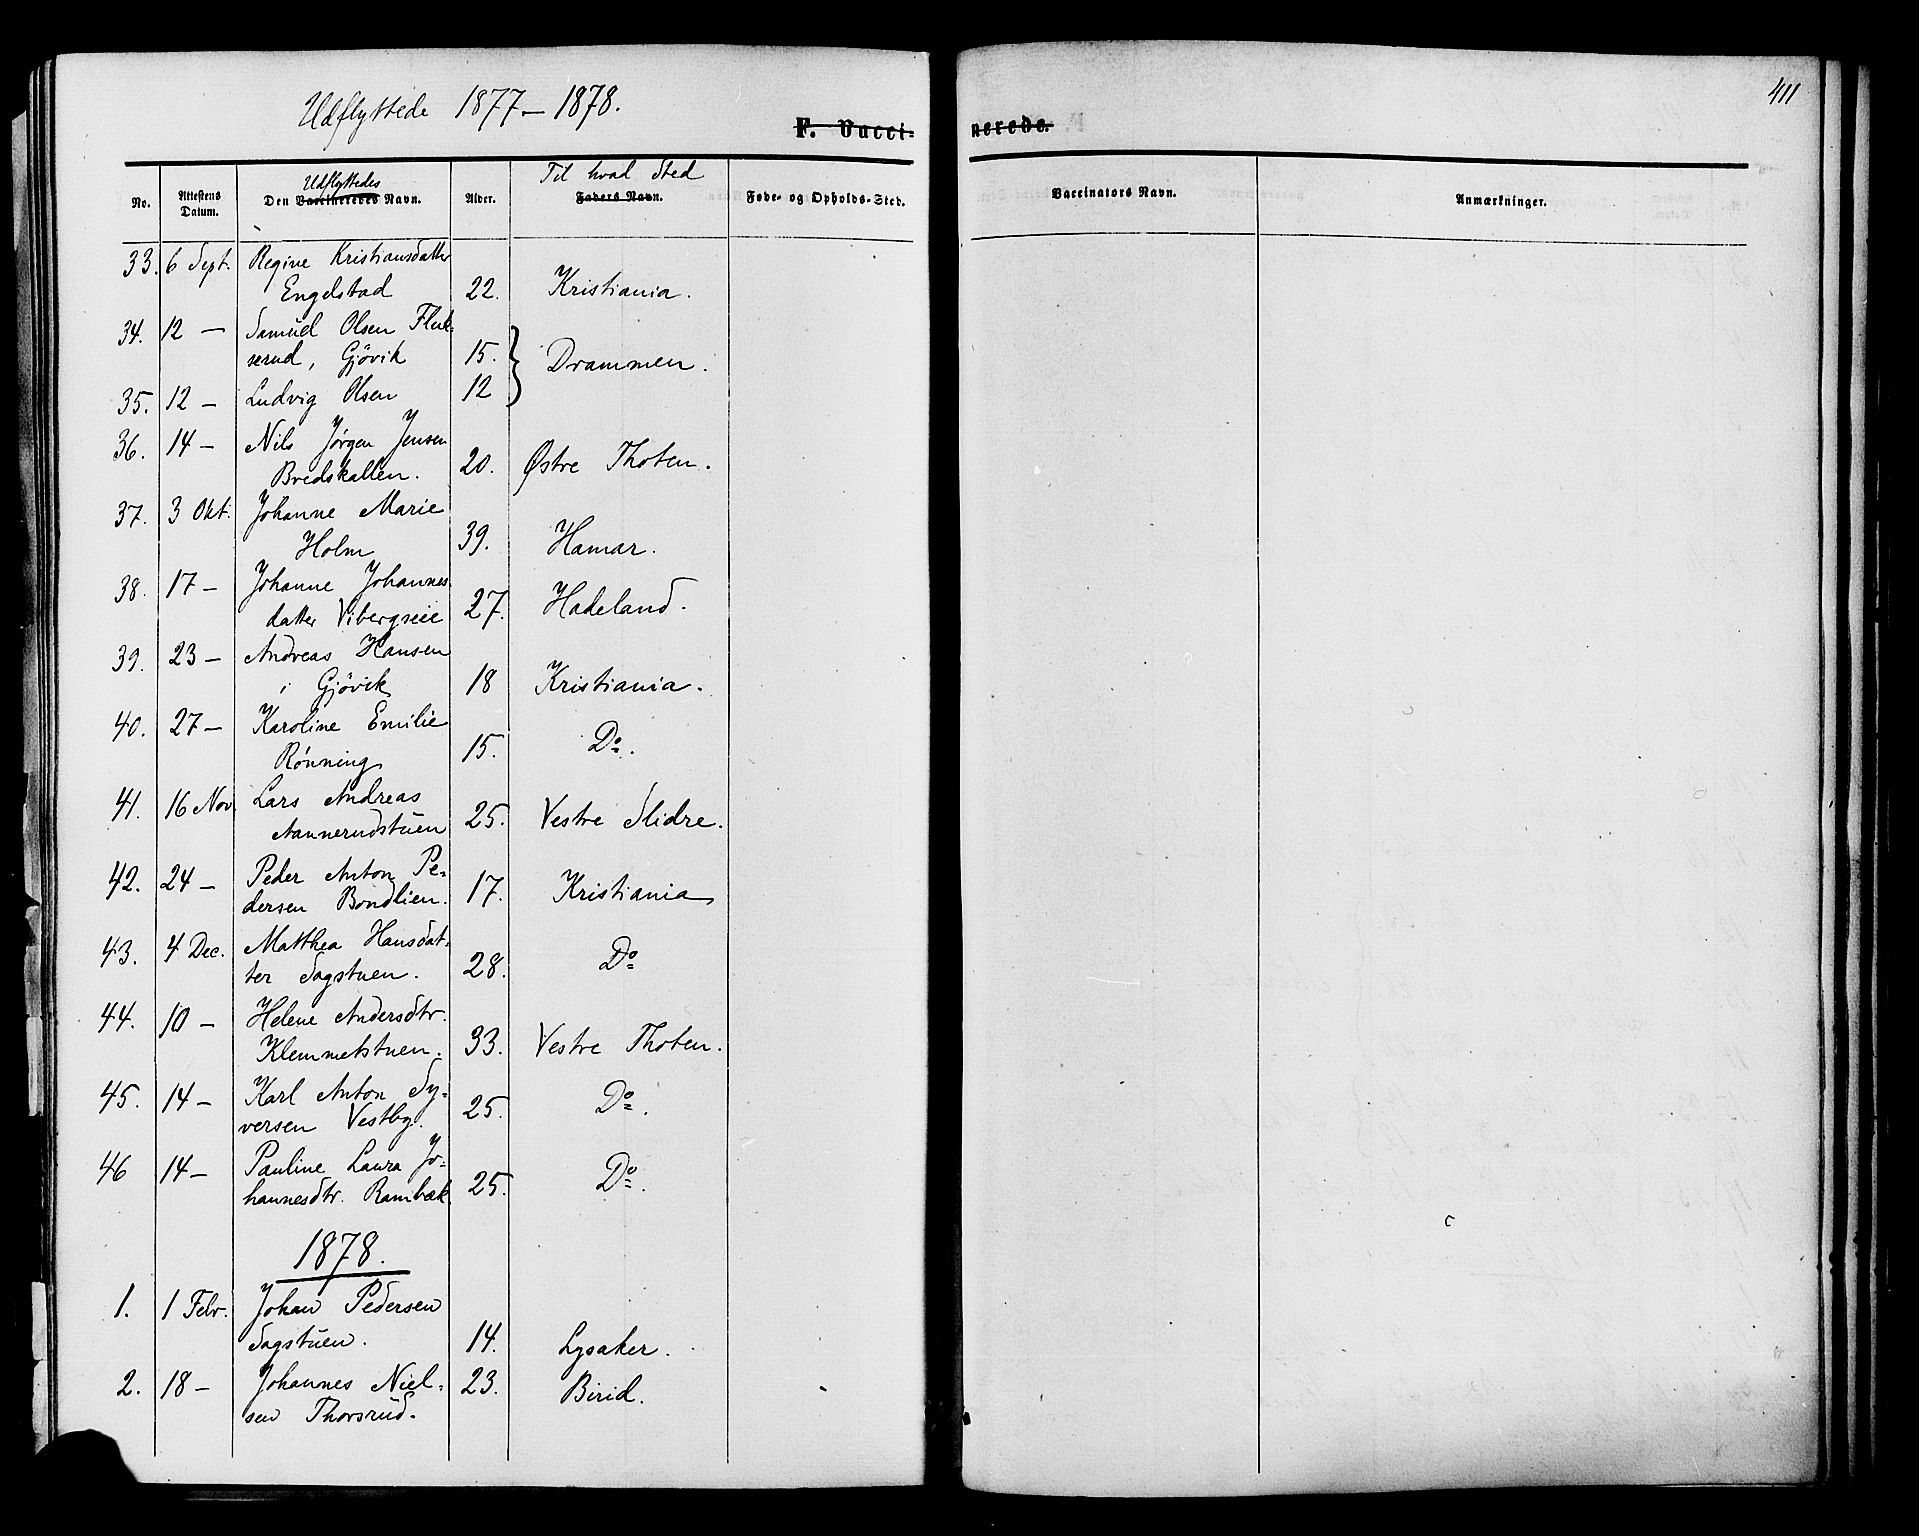 411
Udflyttede 1877–1878.
F. Vacci-nerede.
No. Attestens Datum. Den Vaccineredes Navn. Udflyttedes Alder. Faders Navn. Til hvad Sted Føde- og Opholds-Sted. Vaccinators Navn. Anmærkninger.
33. 6 Sept. Regine Kristiansdatter
Engelstad 22. Kristiania.
34. 12 — Samuel Olsen Fluk-
serud, Gjövik 15. Drammen.
35. 12 — Ludvig Olsen 12
36. 14 — Nils Jørgen Jensen
Bredskallen. 20. Østre Thoten.
37. 3 Okt. Johanne Marie
Holm 39. Hamar.
38. 17 — Johanne Johannes
datter Vibergseie 27. Hadeland.
39. 23 — Andreas Hansen
i Gjövik 18 Kristiania.
40. 27 — Karoline Emilie
Rönning 15. Do.
41. 16 Nov. Lars Andreas
Aannerudstuen 25. Vestre Slidre.
42. 24 — Peder Anton Pe-
dersen Bondlien. 17. Kristiania
43. 4 Dec. Matthea Hansdat-
ter Sagstuen. 28. Do
44. 10 — Helene Andersdtr.
Klemmetstuen. 33. Vestre Thoten.
45. 14 — Karl Anton Sy-
versen Vestby. 25. Do.
46 14 — Pauline Laura Jo-
hannesdtr. Rambæk 25. Do.
1878.
1. 1 Febr. Johan Pedersen
Sagstuen. 14. Lysaker.
2. 18 — Johannes Niel-
sen Thorsrud. 23. Birid.